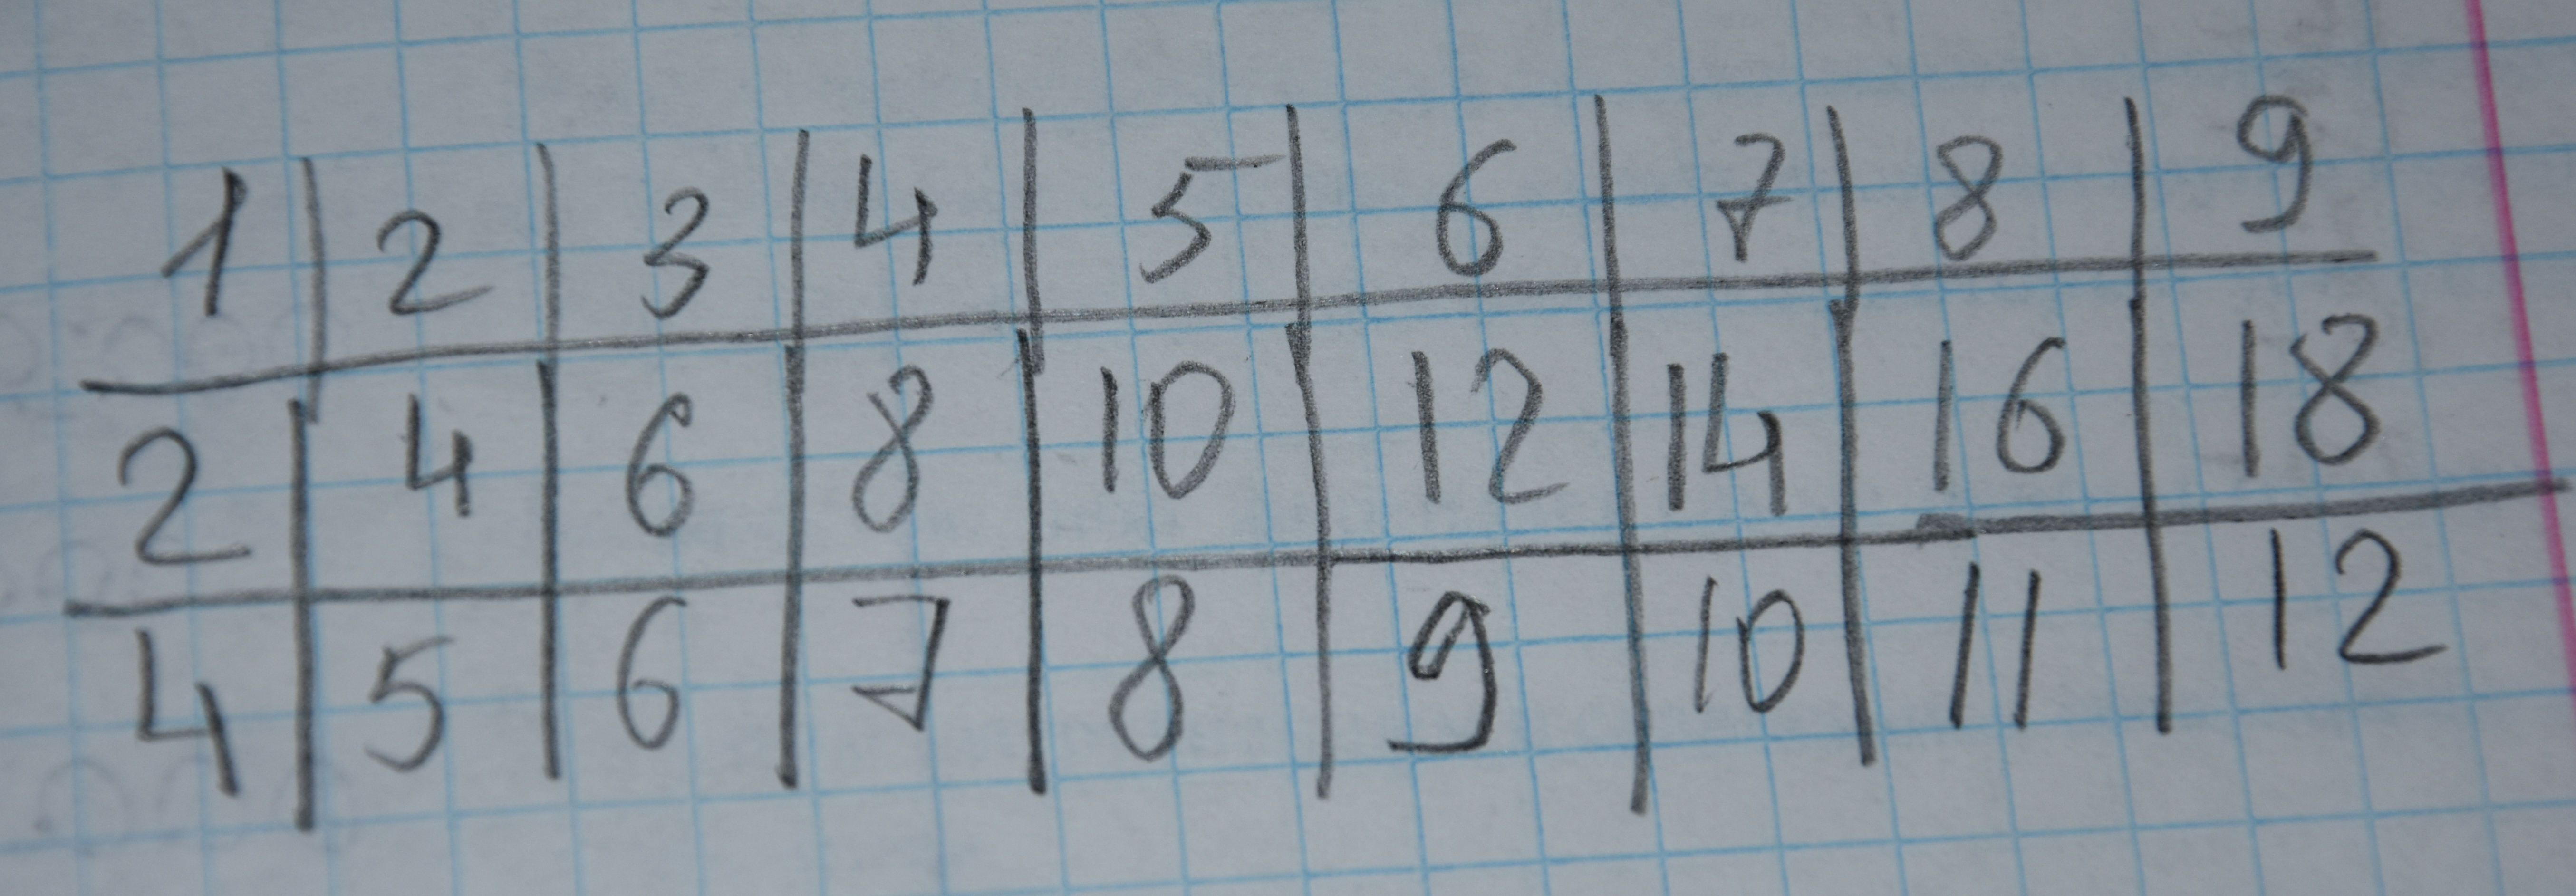 1 2 3 4 5 6 7 8 9
2 4 6 8 10 12 14 16 18
4 5 6 7 8 9 10 11 12